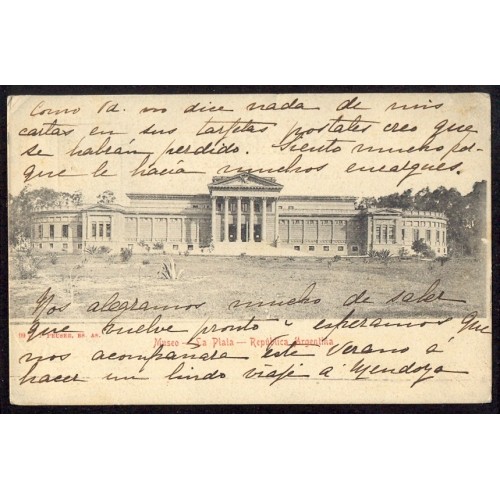 Como Vd. no dice nada de mis
cartas en sus tarjetas postales creo que
se habían perdido. Siento mucho por-
que le hacía muchos encargues.
Nos alegramos mucho de saber
PEUSER, BS. AS.
Museo — La Plata — República Argentina
que vuelve pronto y esperamos que
nos acompañara este verano á
hacer un lindo viaje á Mendoza